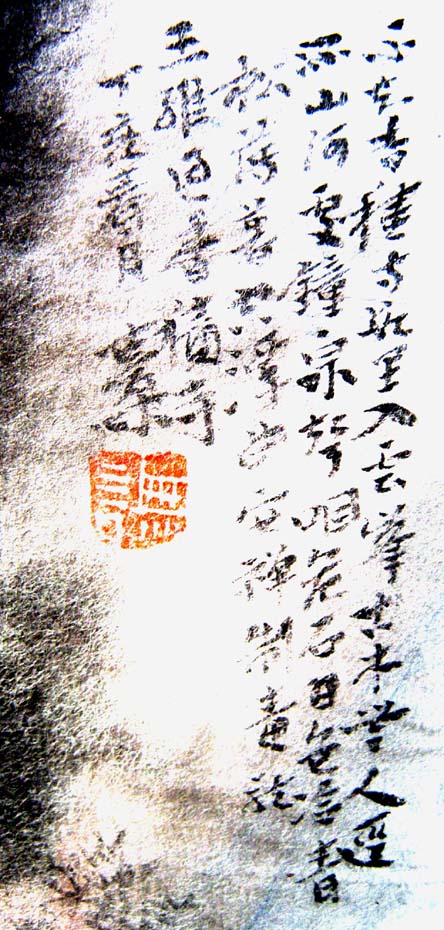 不知香積寺數里入雲峯古木無人逕
深山何處鐘泉聲咽危石日色冷青
松薄暮空潭曲安禪制毒龍
王維過香積寺
丁亥春月